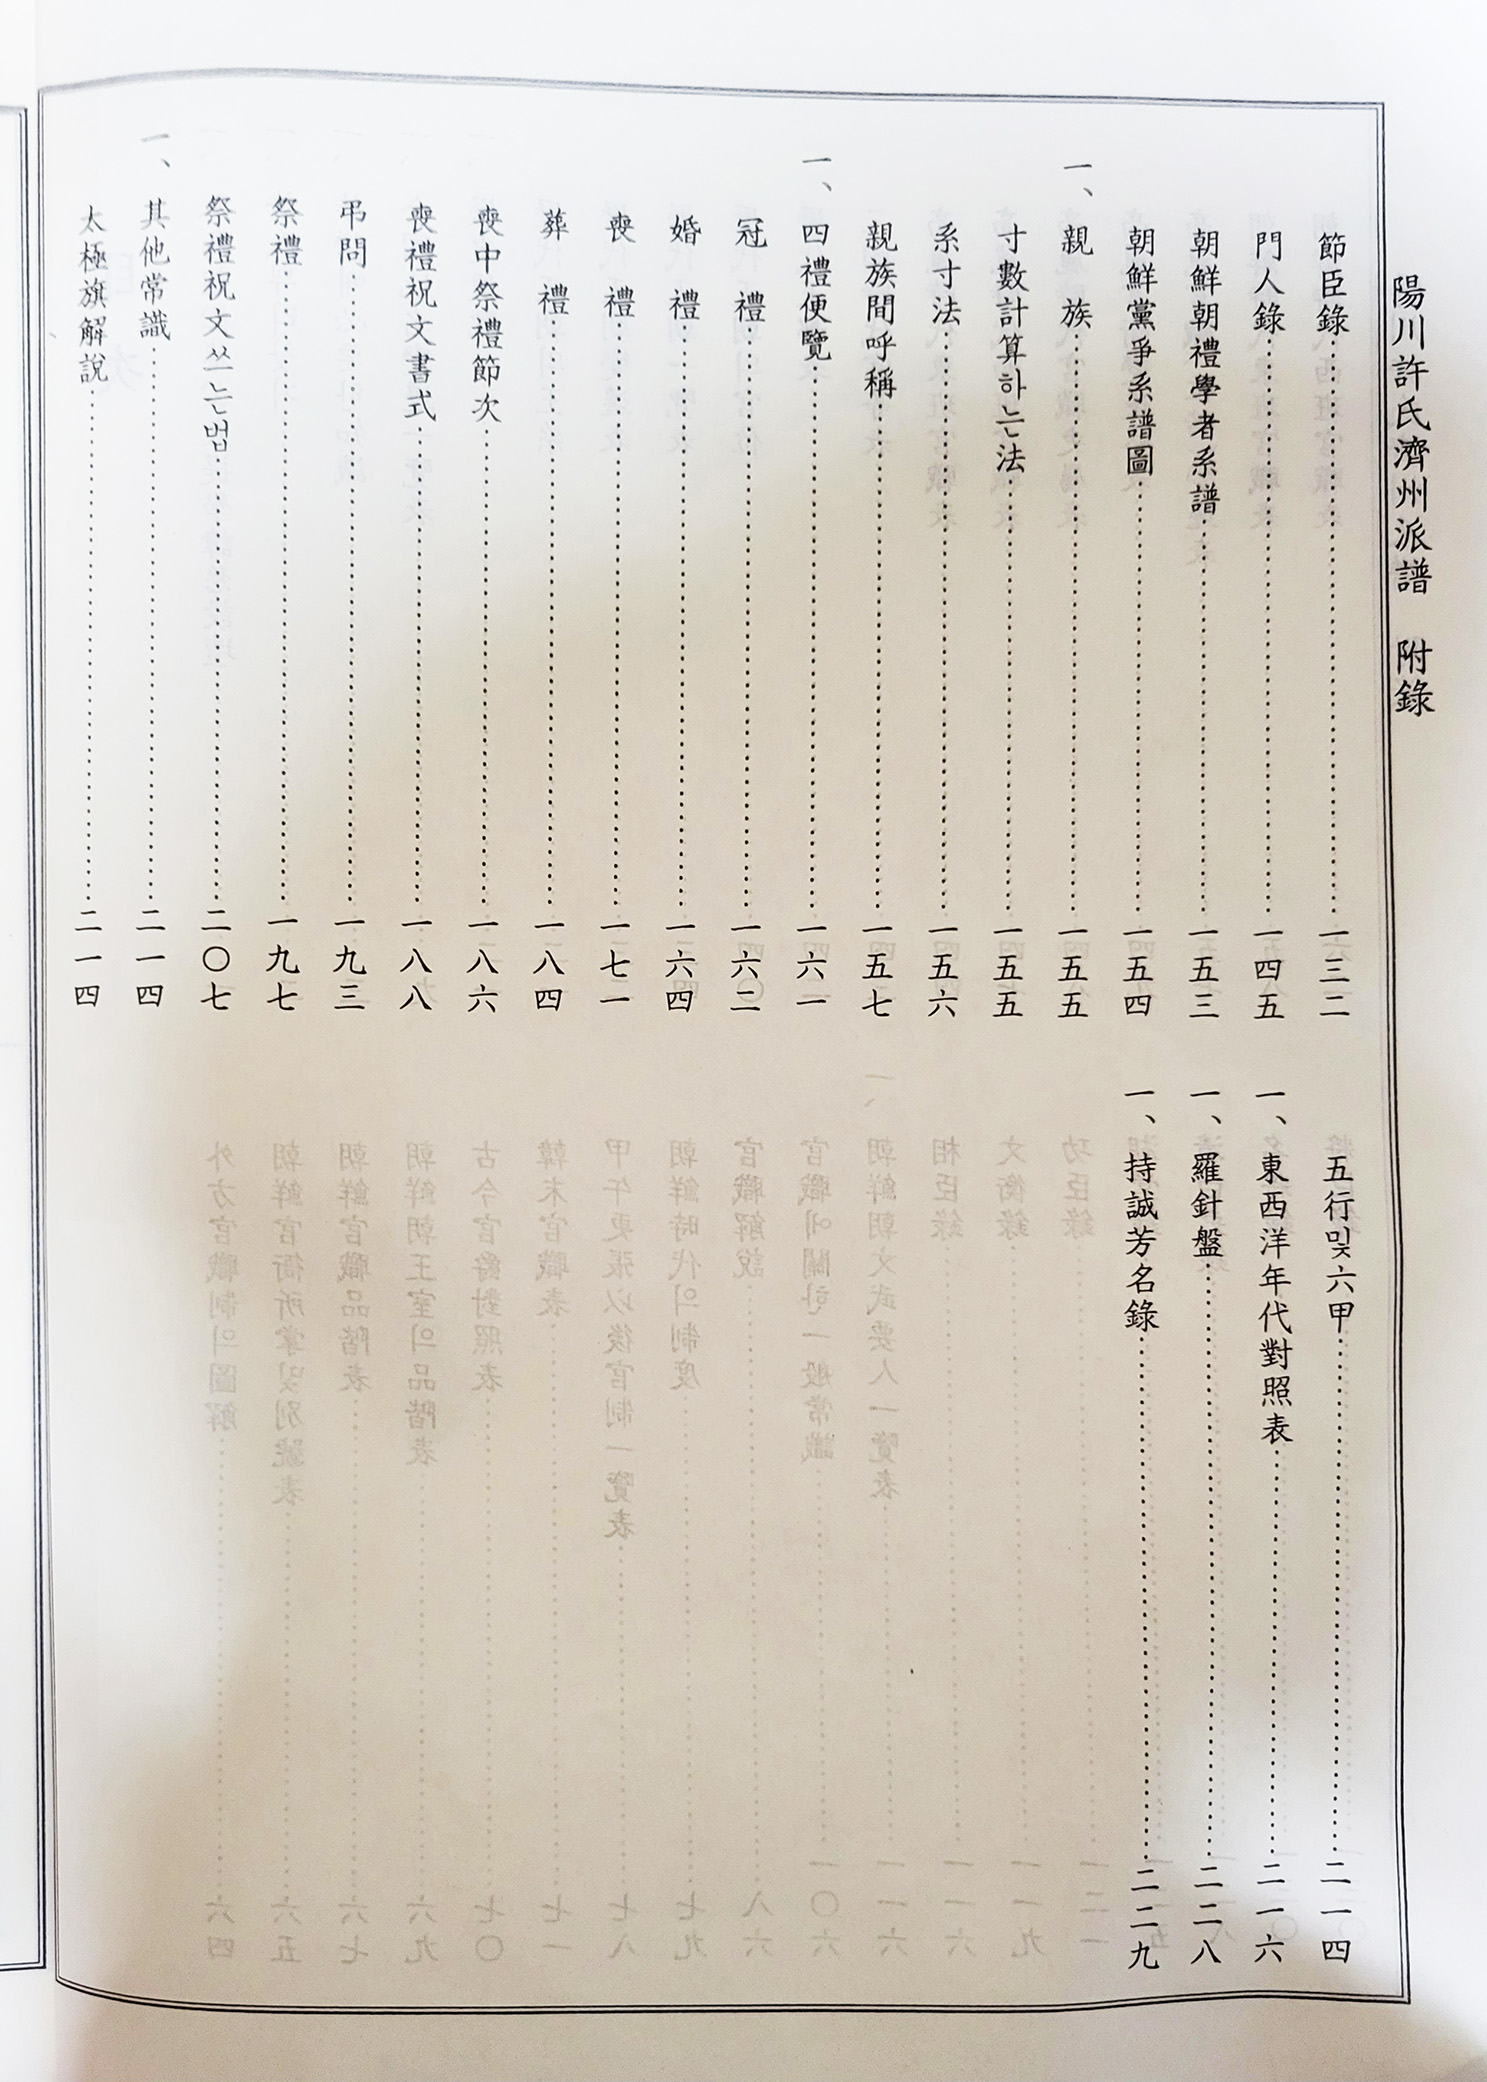 陽川許氏濟州派譜 附錄
節臣錄……一三二
門人錄……一四五
朝鮮朝禮學者系譜……一五三
朝鮮黨爭系譜圖……一五四
一、親 族……一五五
寸數計算하는法……一五五
系寸法……一五六
親族間呼稱……一五七
一、四禮便覽……一六一
冠 禮……一六二
婚 禮……一六四
喪 禮……一七一
葬 禮……一八四
喪中祭禮節次……一八六
喪禮祝文書式……一八八
弔問……一九三
祭禮……一九七
祭禮祝文쓰는법……二〇七
一、其他常識……二一四
太極旗解說……二一四
五行및六甲……二一四
一、東西洋年代對照表……二一六
一、羅針盤……二二八
一、持誠芳名錄……二二九